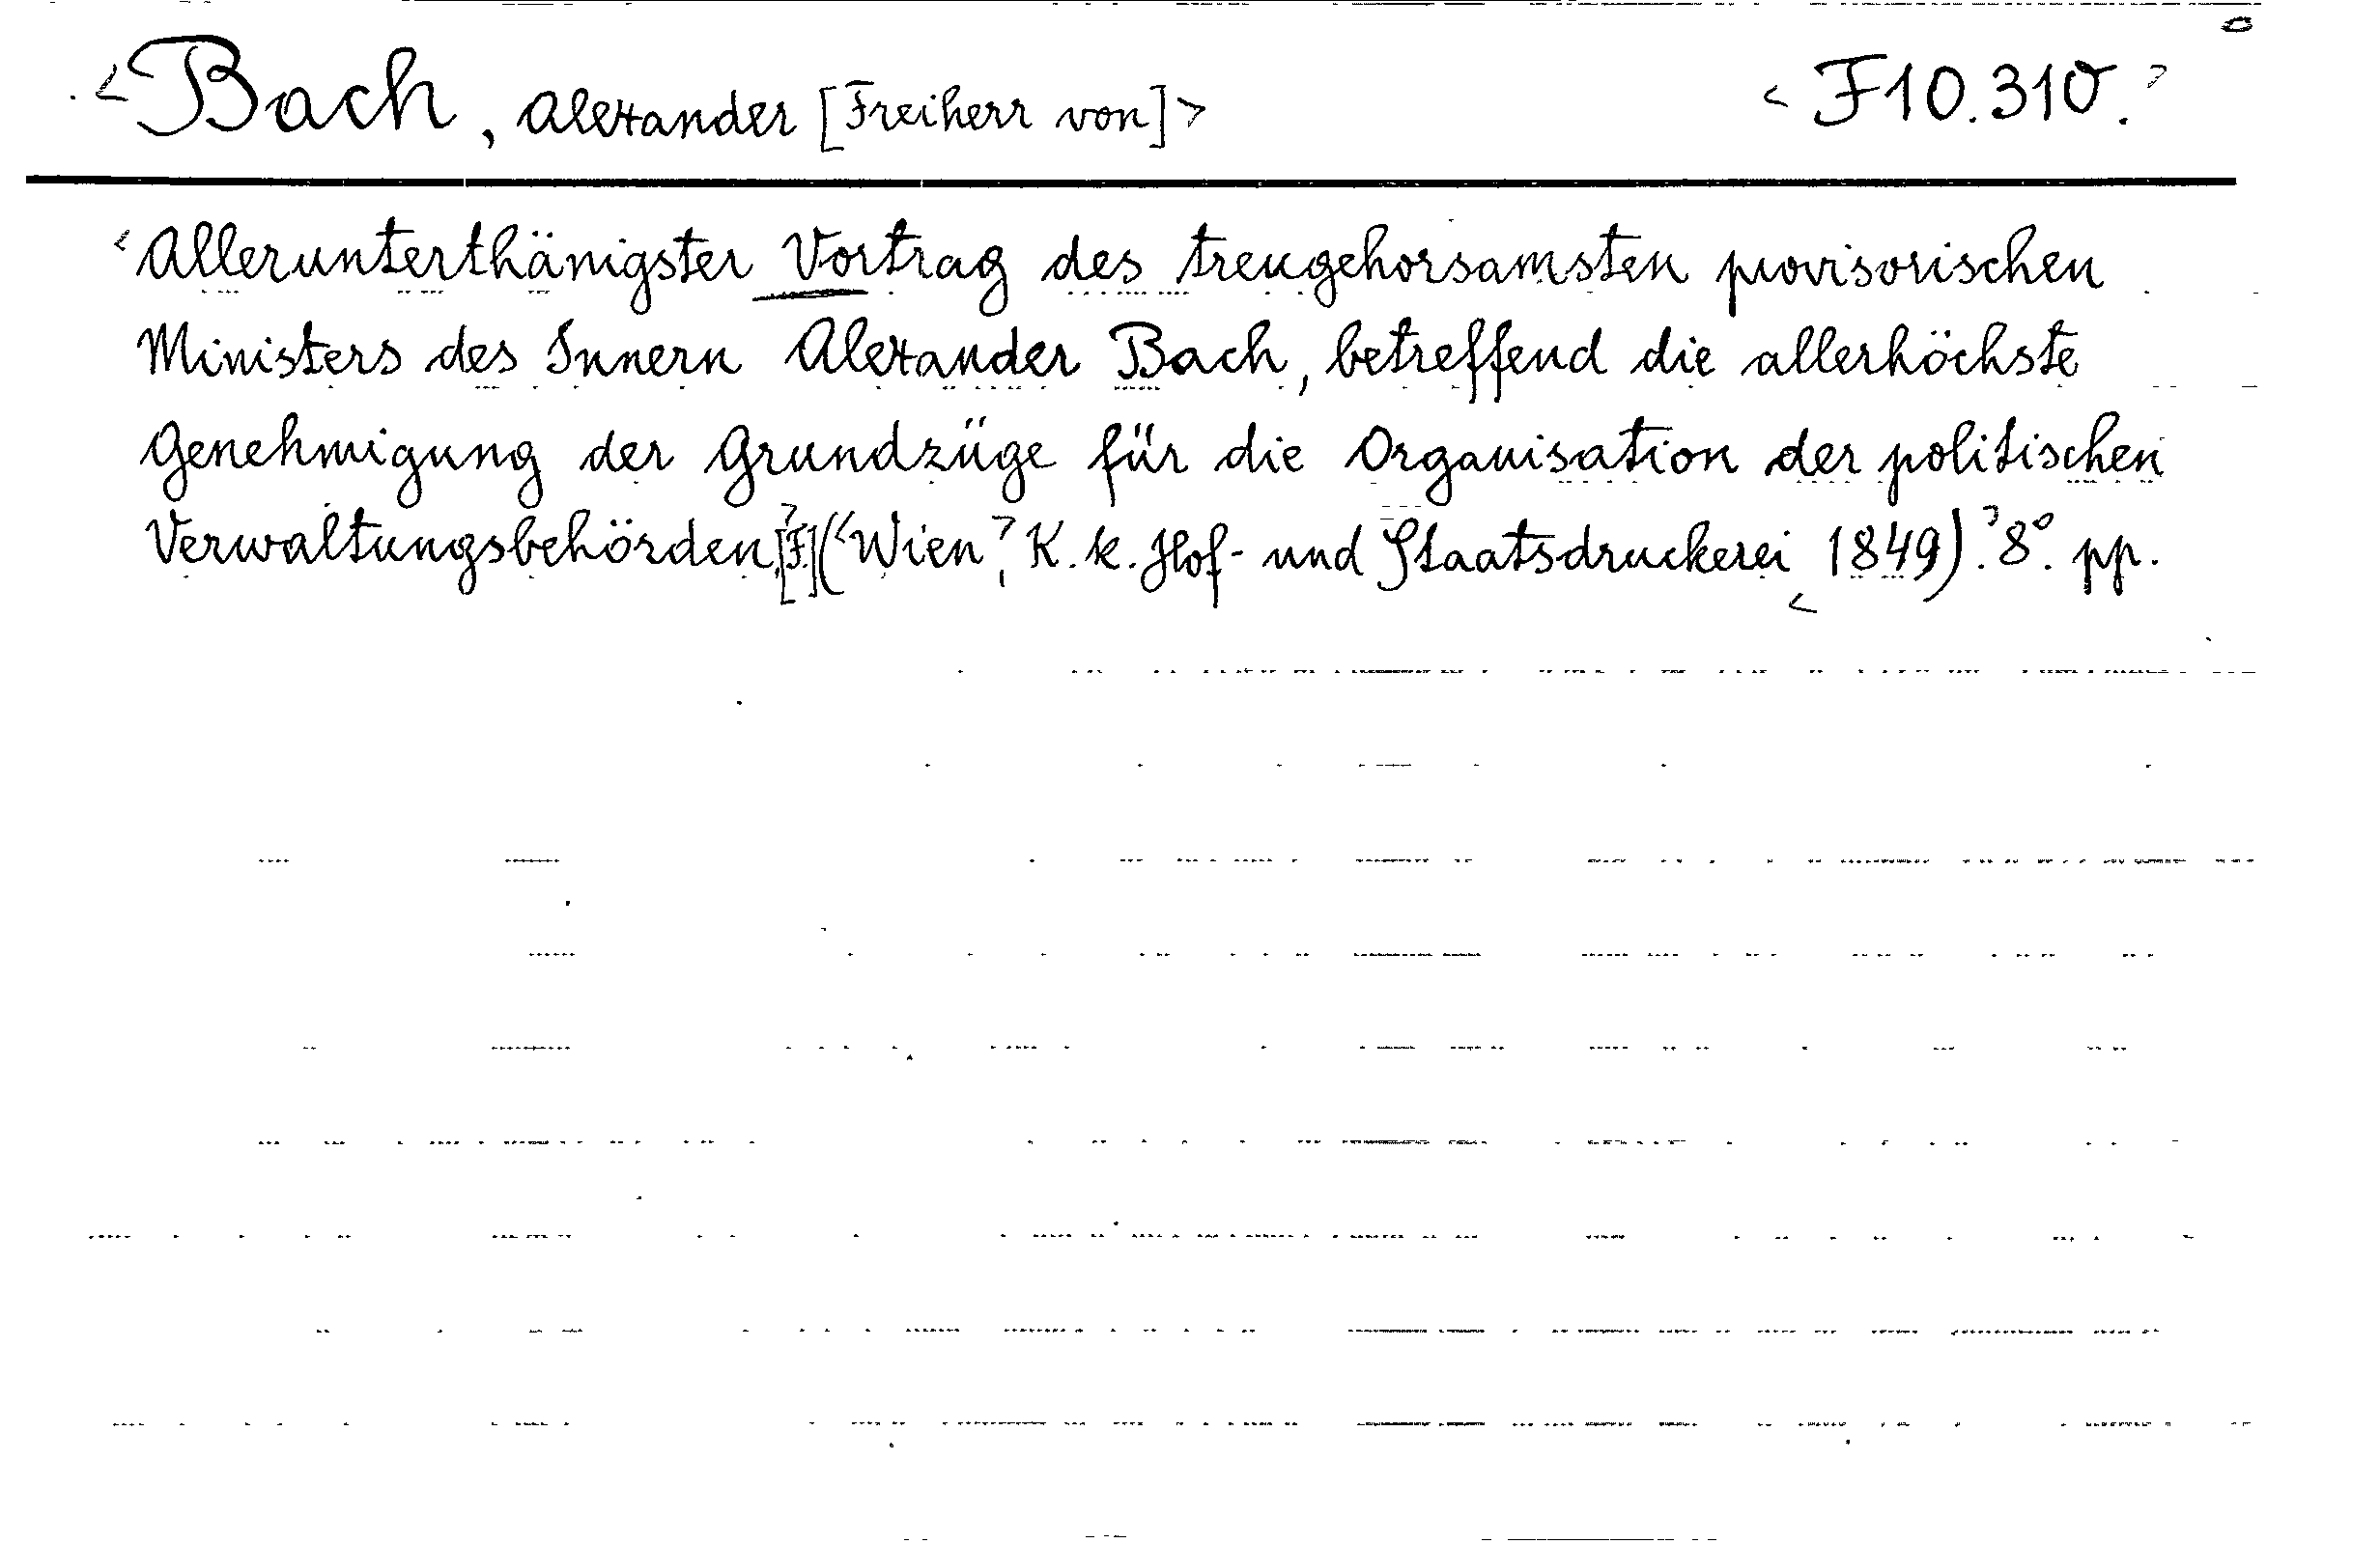 <Bach, Alexander [Freiherr von]> <F10.310.>
<Allerunterthänigster Vortrag des treugehorsamsten provisorischen
Ministers des Innern Alexander Bach, betreffend die allerhöchste
Genehmigung der Grundzüge für die Organisation der politischen
Verwaltungsbehörden.> [F.] (<Wien>, K. k. Hof- und Staatsdruckerei <1849).> 8°. pp.